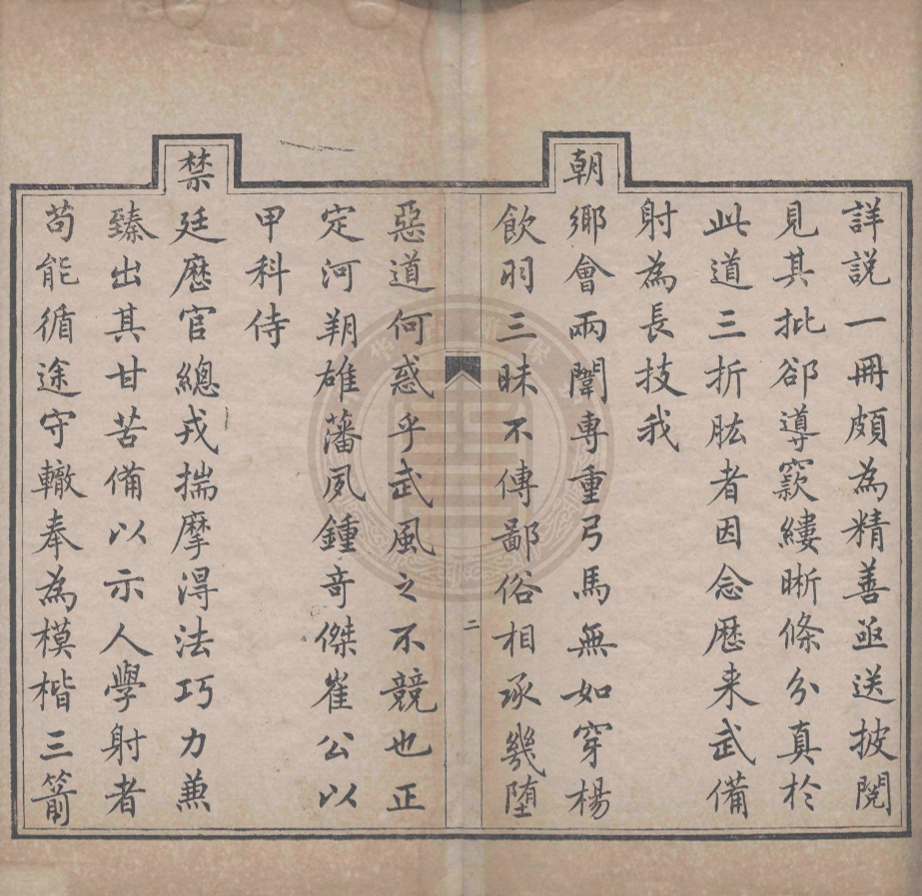 詳説一冊頗為精善亟送披閱
見其批郤導窾縷晰條分真於
此道三折肱者因念歴来武備
射為長技我
朝鄉會兩闈專重弓馬無如穿楊
飲羽三昧不傳鄙俗相承幾墮
二
惡道何惑乎武風之不競也正
定河朔雄藩夙鍾奇傑崔公以
甲科侍
禁廷歴官總戎揣摩得法巧力兼
臻出其甘苦備以示人學射者
苟能循途守轍奉為模楷三箭